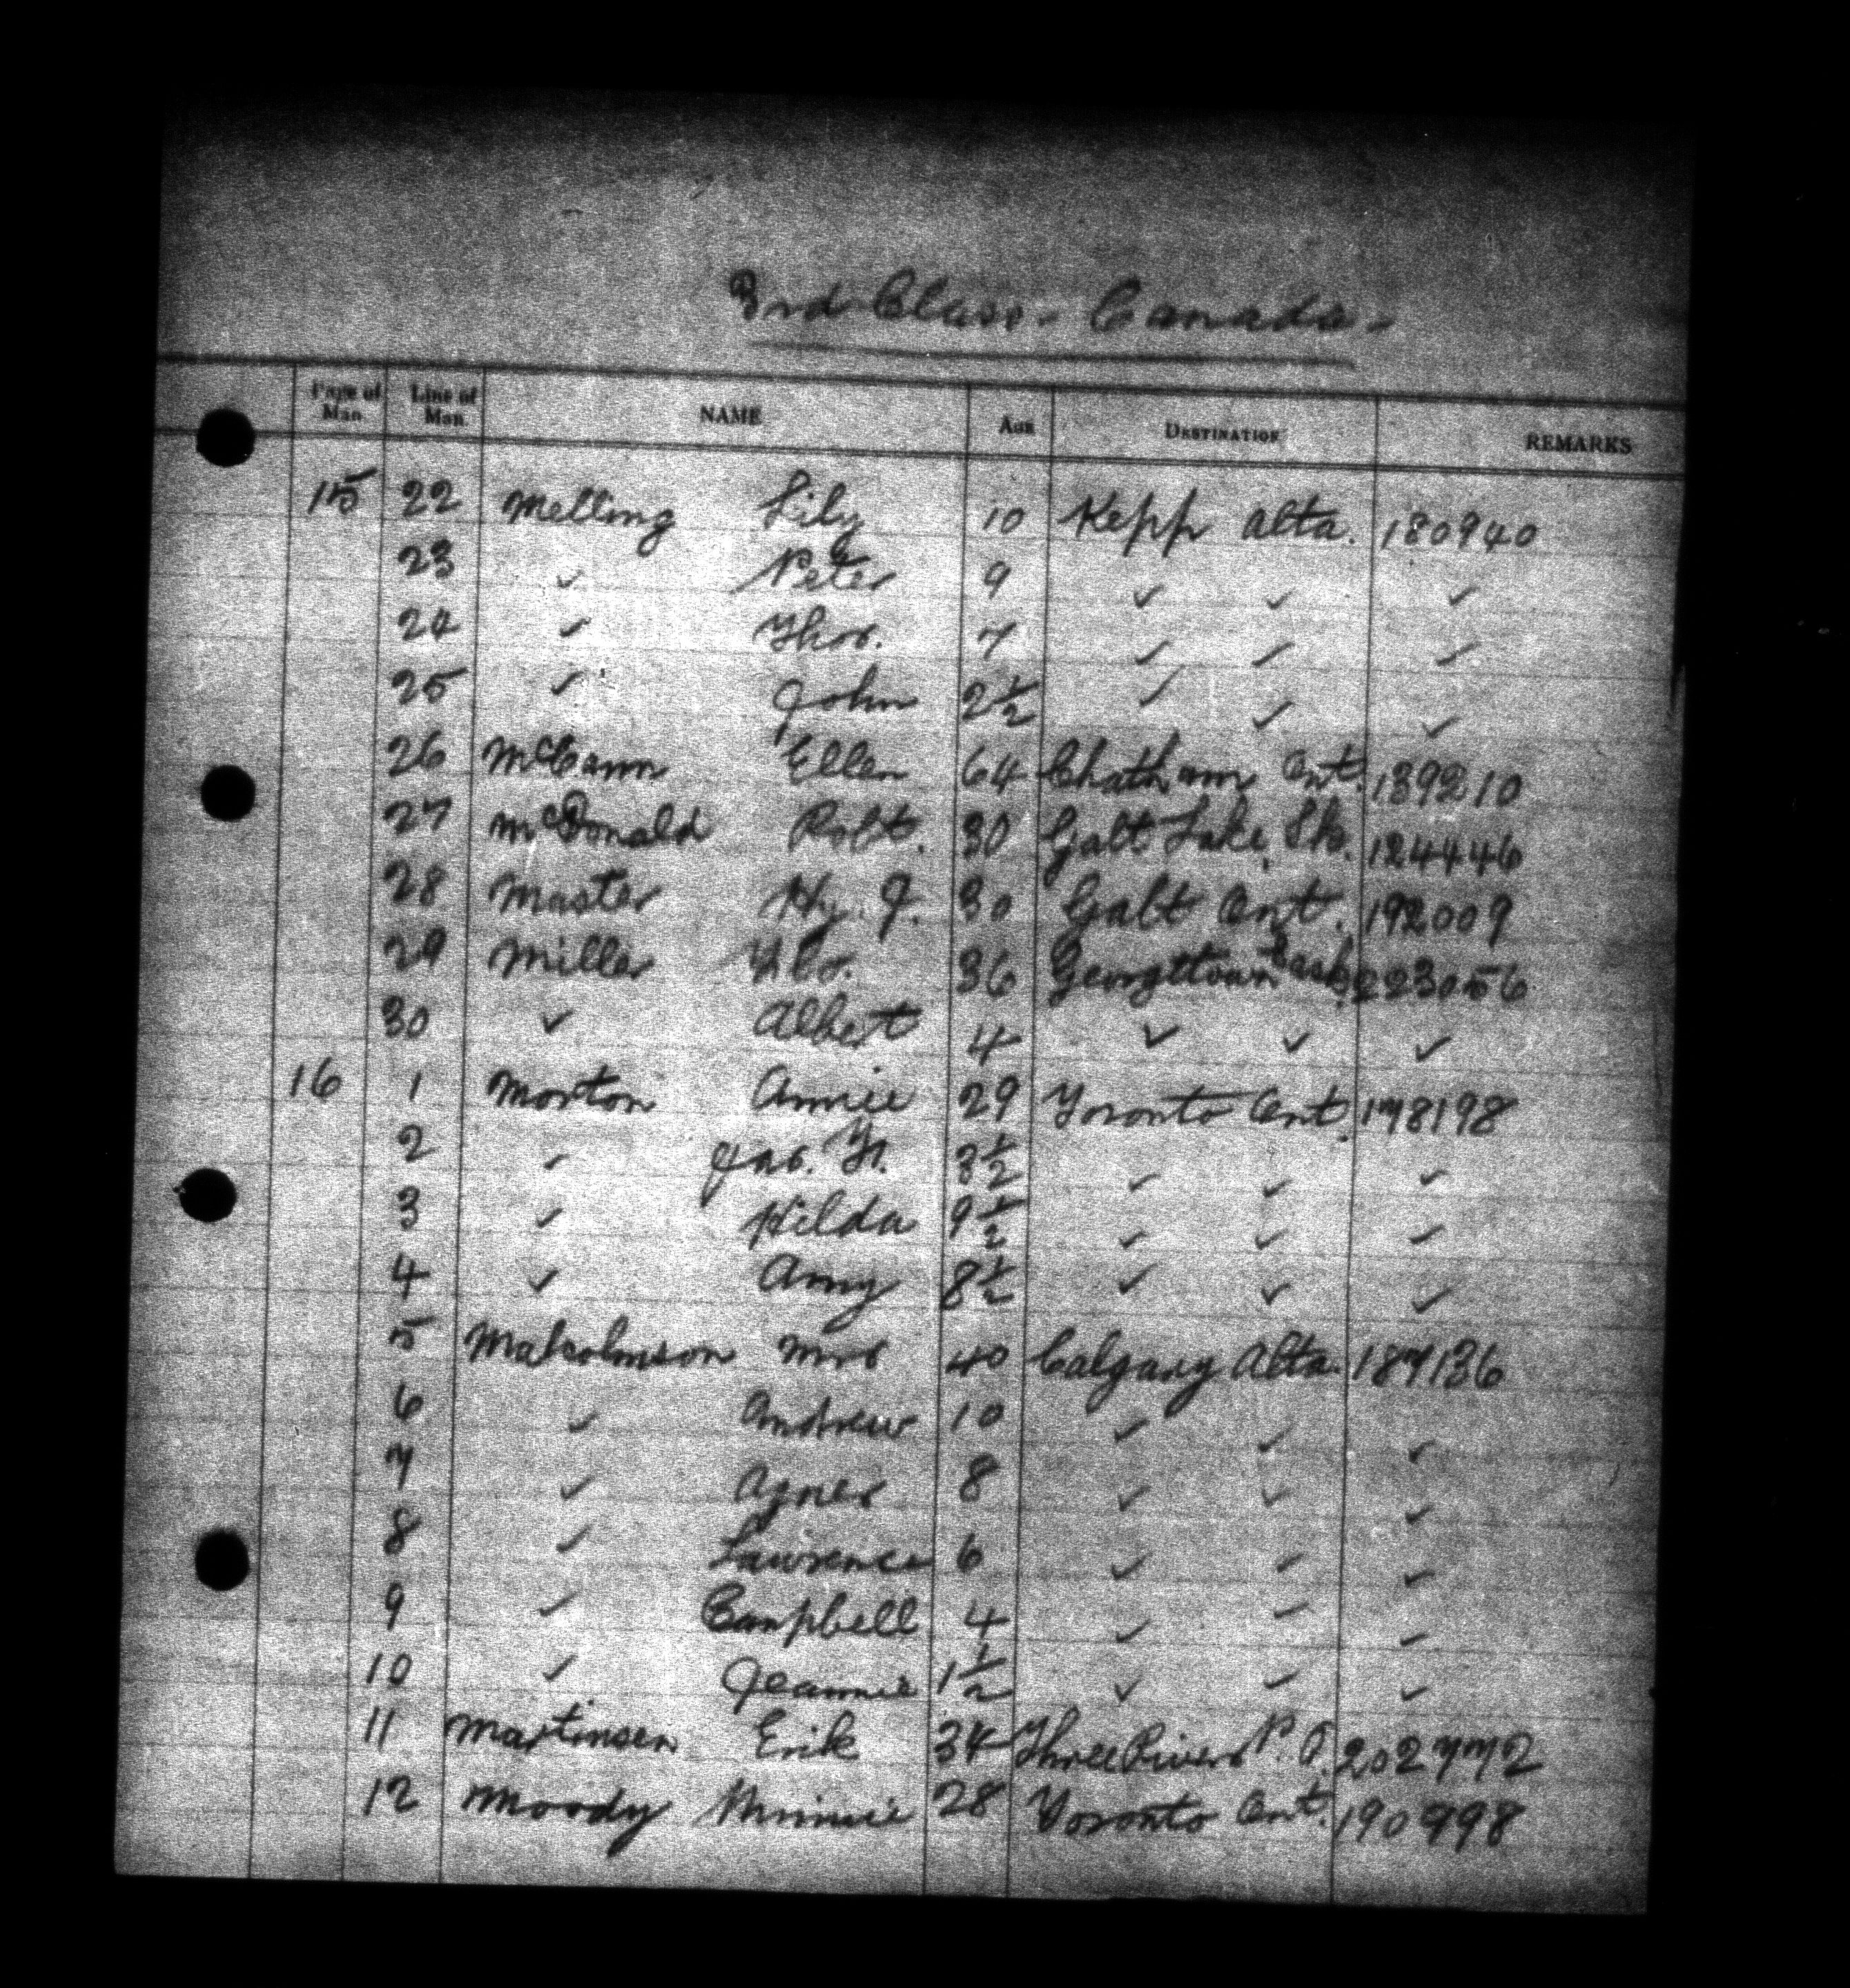 3rd Class - Canada -
Page of Man. Line of Man. NAME AGE DESTINATION REMARKS
15 22 Melling Lily 10 Kepp Alta. 180940
23 ✓ Peter 9 ✓ ✓ ✓
24 ✓ Thos. 7 ✓ ✓ ✓
25 ✓ John 2 1/2 ✓ ✓ ✓
26 McCann Ellen 64 Chatham Ont. 139210
27 McDonald Robt. 30 Galt Lake, Sk. 124446
28 Master Hy. J. 30 Galt Ont. 192009
29 Miller 36 Georgetown Sask. 223056
30 ✓ Albert 4 ✓ ✓ ✓
16 1 Morton Annie 29 Toronto Ont. 178198
2 ✓ Jas. 3 1/2 ✓ ✓ ✓
3 ✓ Hilda 9 1/2 ✓ ✓ ✓
4 ✓ Amy 8 1/2 ✓ ✓ ✓
5 Malcolmson Mrs 40 Calgary Alta. 187136
6 ✓ Andrew 10 ✓ ✓ ✓
7 ✓ Agnes 8 ✓ ✓ ✓
8 ✓ Lawrence 6 ✓ ✓ ✓
9 ✓ Campbell 4 ✓ ✓ ✓
10 ✓ Jeannie 1 1/2 ✓ ✓ ✓
11 Martinsen Erik 34 Three Rivers P.Q. 202772
12 Moody Minnie 28 Toronto Ont. 190998